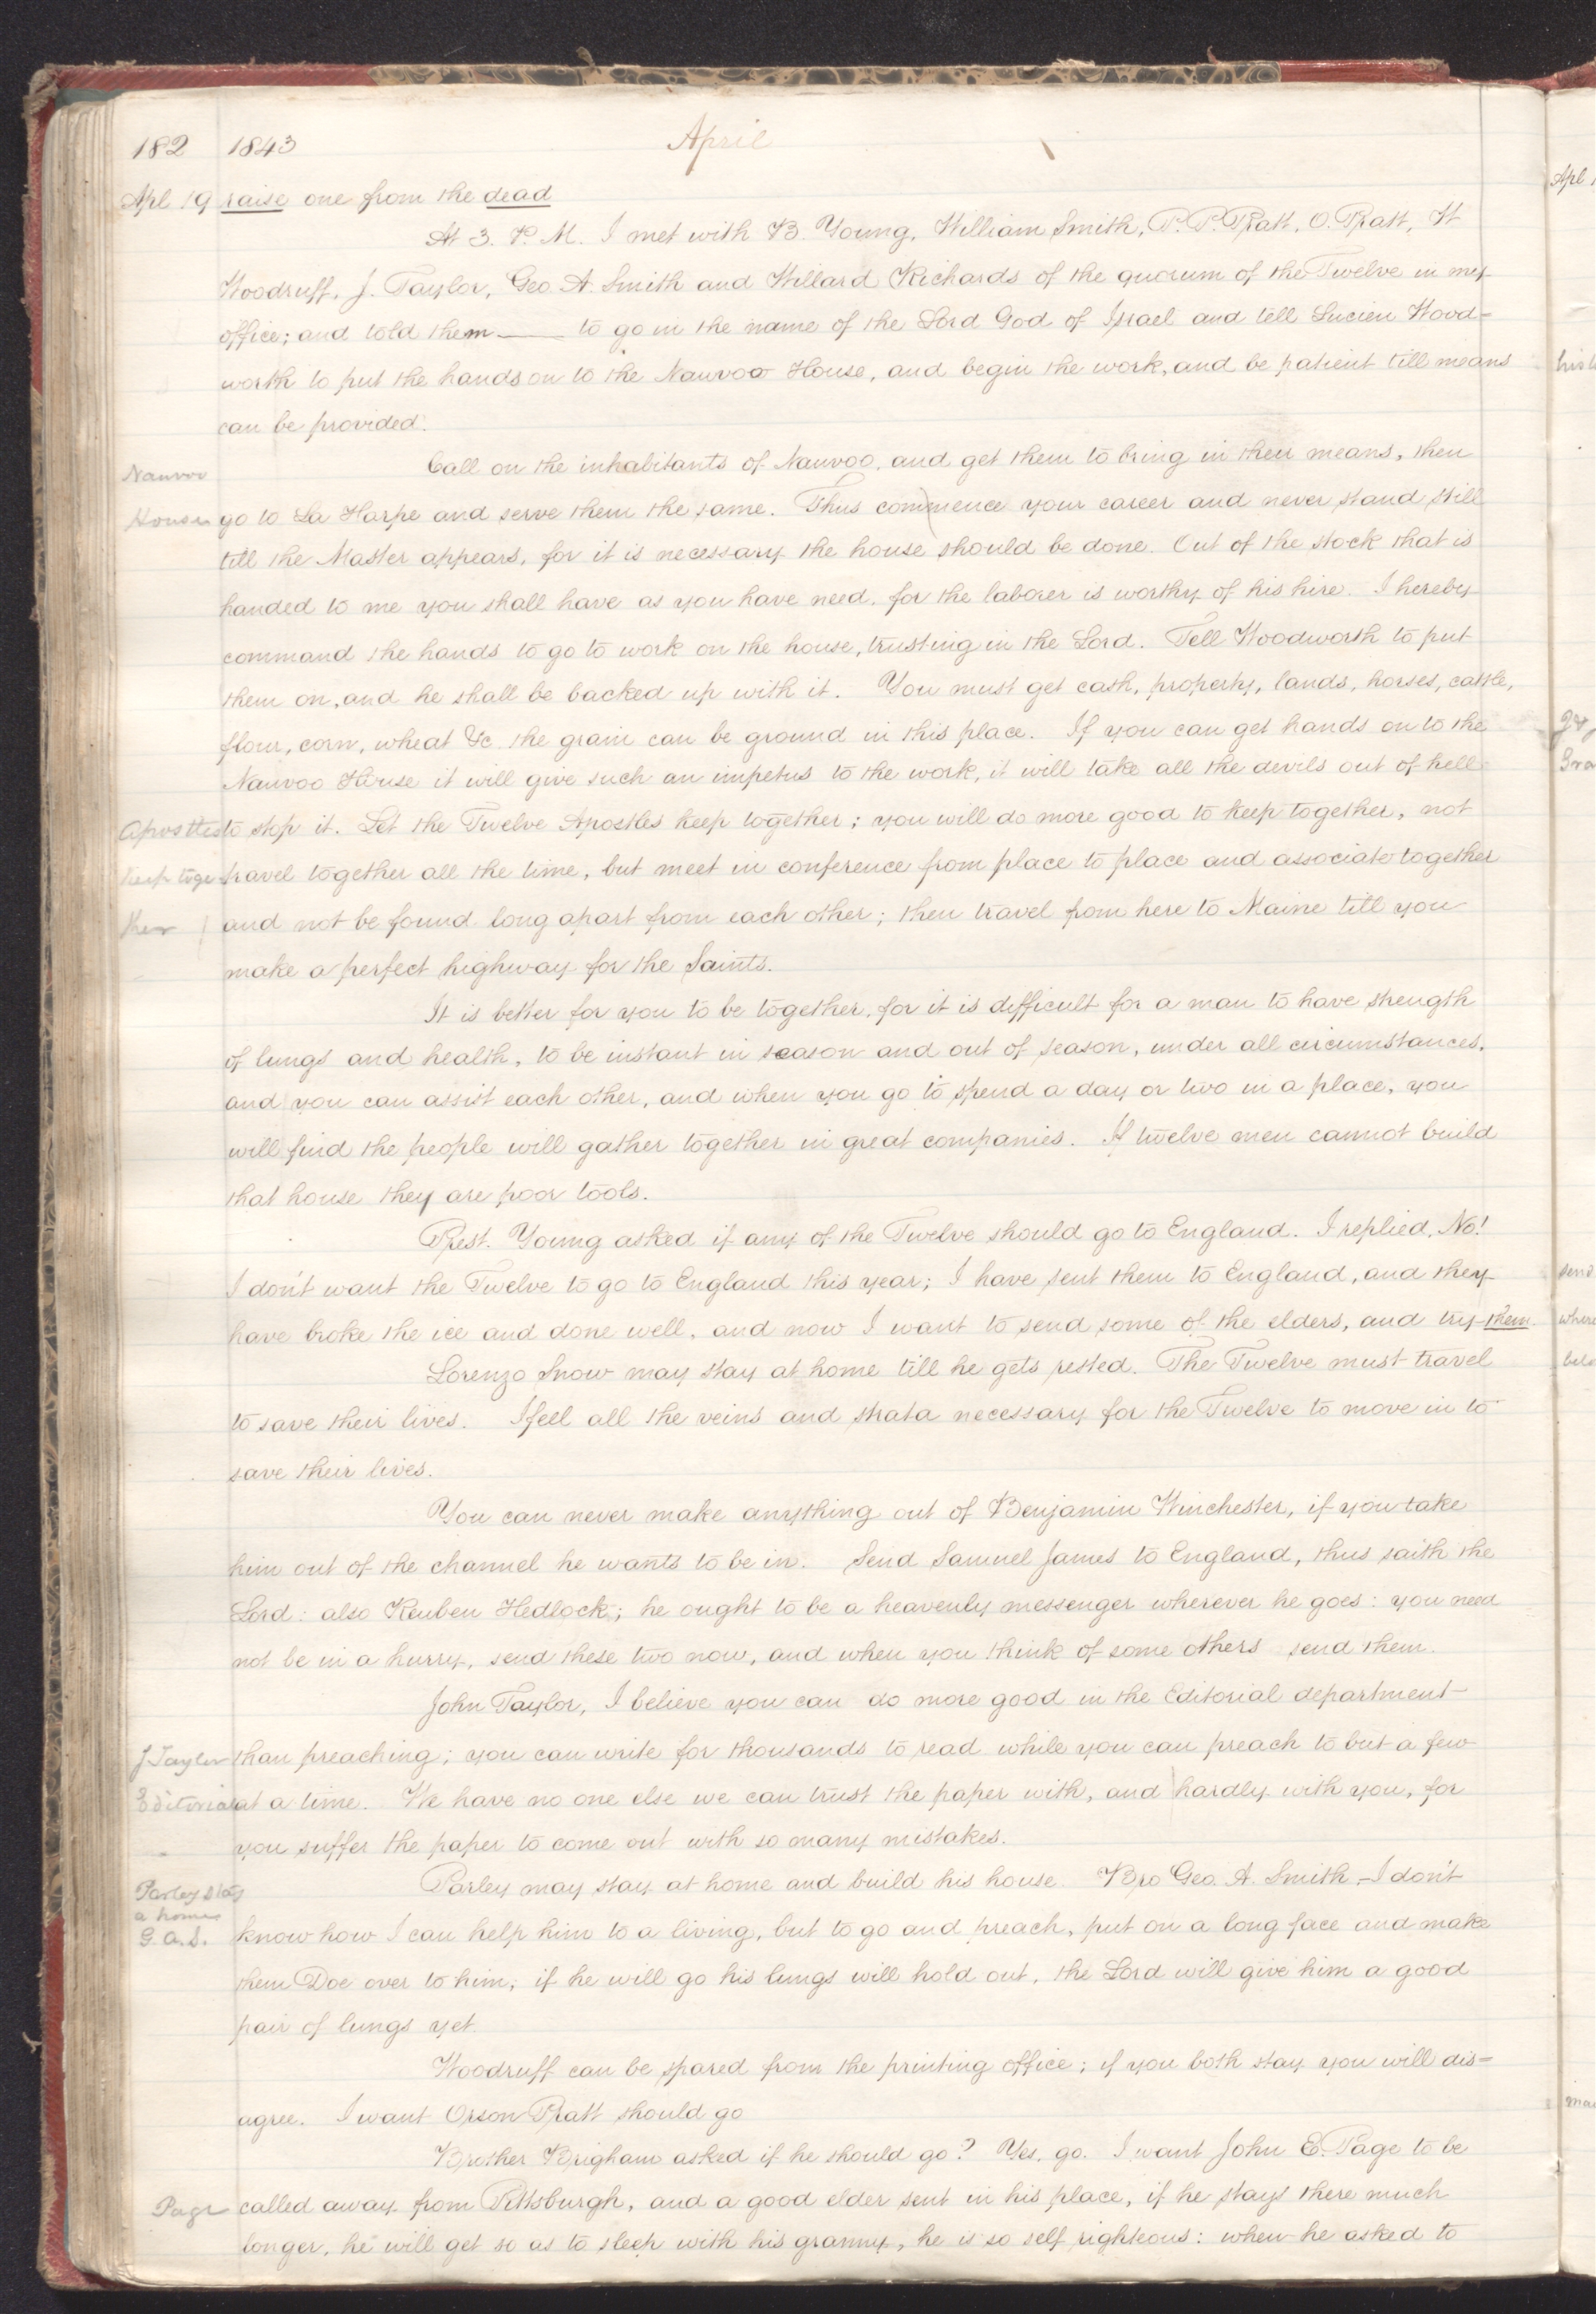 182 1843 April
Apl 19 raise one from the dead
At 3. P. M. I met with B. Young, William Smith, P. P. Pratt, O. Pratt, W
Woodruff, J. Taylor, Geo. A. Smith and Willard Richards of the quorum of the Twelve in my
office; and told them —— to go in the name of the Lord God of Israel and tell Lucien Wood=
worth to put the hands on to the Nauvoo House, and begin the work, and be patient till means
can be provided.
Call on the inhabitants of Nauvoo, and get them to bring in their means, then
Nauvoo
House go to La Harpe and serve them the same. Thus commence your career and never stand still
till the Master appears, for it is necessary the house should be done. Out of the stock that is
handed to me you shall have as you have need, for the laborer is worthy of his hire. I hereby
command the hands to go to work on the house, trusting in the Lord. Tell Woodworth to put
them on, and he shall be backed up with it. You must get cash, property, lands, horses, cattle,
flour, corn, wheat &c. the grain can be ground in this place. If you can get hands on to the
Nauvoo House it will give such an impetus to the work, it will take all the devils out of hell
Apostles to stop it. Let the Twelve Apostles keep together; you will do more good to keep together, not
keep toge travel together all the time, but meet in conference from place to place and associate together
ther and not be found long apart from each other; then travel from here to Maine till you
make a perfect highway for the Saints.
It is better for you to be together, for it is difficult for a man to have strength
of lungs and health, to be instant in season and out of season, under all circumstances,
and you can assist each other, and when you go to spend a day or two in a place, you
will find the people will gather together in great companies. If twelve men cannot build
that house they are poor tools.
Prest. Young asked if any of the Twelve should go to England. I replied, No!
I don't want the Twelve to go to England this year; I have sent them to England, and they
have broke the ice and done well, and now I want to send some of the elders, and try them.
Lorenzo Snow may stay at home till he gets rested. The Twelve must travel
to save their lives. I feel all the veins and strata necessary for the Twelve to move in to
save their lives.
You can never make anything out of Benjamin Winchester, if you take
him out of the channel he wants to be in. Send Samuel James to England, thus saith the
Lord: also Reuben Hedlock; he ought to be a heavenly messenger wherever he goes: you need
not be in a hurry, send these two now, and when you think of some others send them.
John Taylor, I believe you can do more good in the Editorial department
J Taylor than preaching; you can write for thousands to read while you can preach to but a few
Editorial at a time. We have no one else we can trust the paper with, and hardly with you, for
you suffer the paper to come out with so many mistakes.
Parley may stay at home and build his house. Bro Geo. A. Smith, I don't
Parley stay
a home
G. A. S. know how I can help him to a living, but to go and preach, put on a long face and make
them Doe over to him, if he will go his lungs will hold out, the Lord will give him a good
pair of lungs yet.
Woodruff can be spared from the printing office; if you both stay you will dis=
agree. I want Orson Pratt should go
Brother Brigham asked if he should go? Yes, go. I want John E. Page to be
Page called away from Pittsburgh, and a good elder sent in his place, if he stays there much
longer, he will get so as to sleep with his granny, he is so self righteous: when he asked to